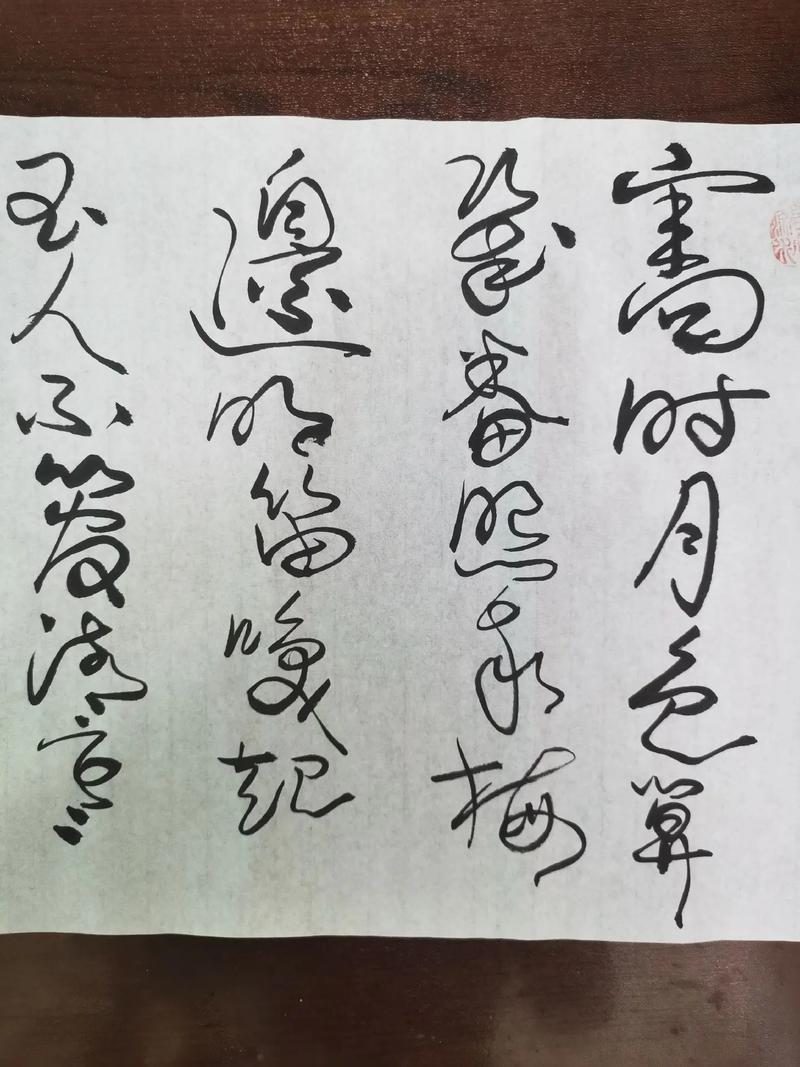 舊时月色算
幾番照我梅
邊吹笛喚起
玉人不管清寒